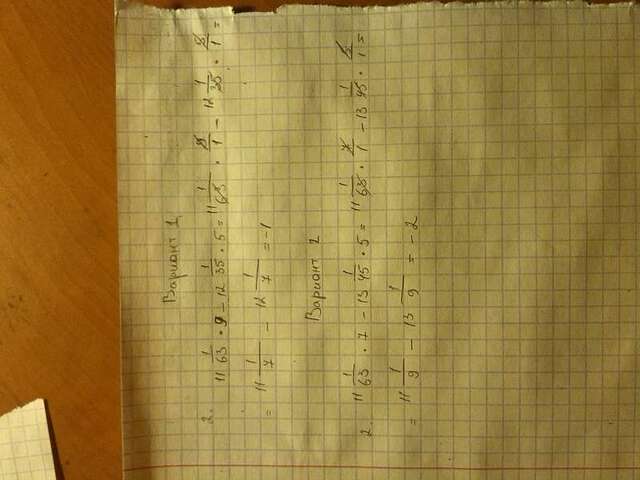 Вариант 1
2. 11 1/63 · 9 − 12 1/35 · 5 = 11 1/63 · 9/1 − 12 1/35 · 5/1 =
= 11 1/7 − 12 1/7 = −1
Вариант 2
2. 11 1/63 · 7 − 13 1/45 · 5 = 11 1/63 · 7/1 − 13 1/45 · 5/1 =
= 11 1/9 − 13 1/9 = −2